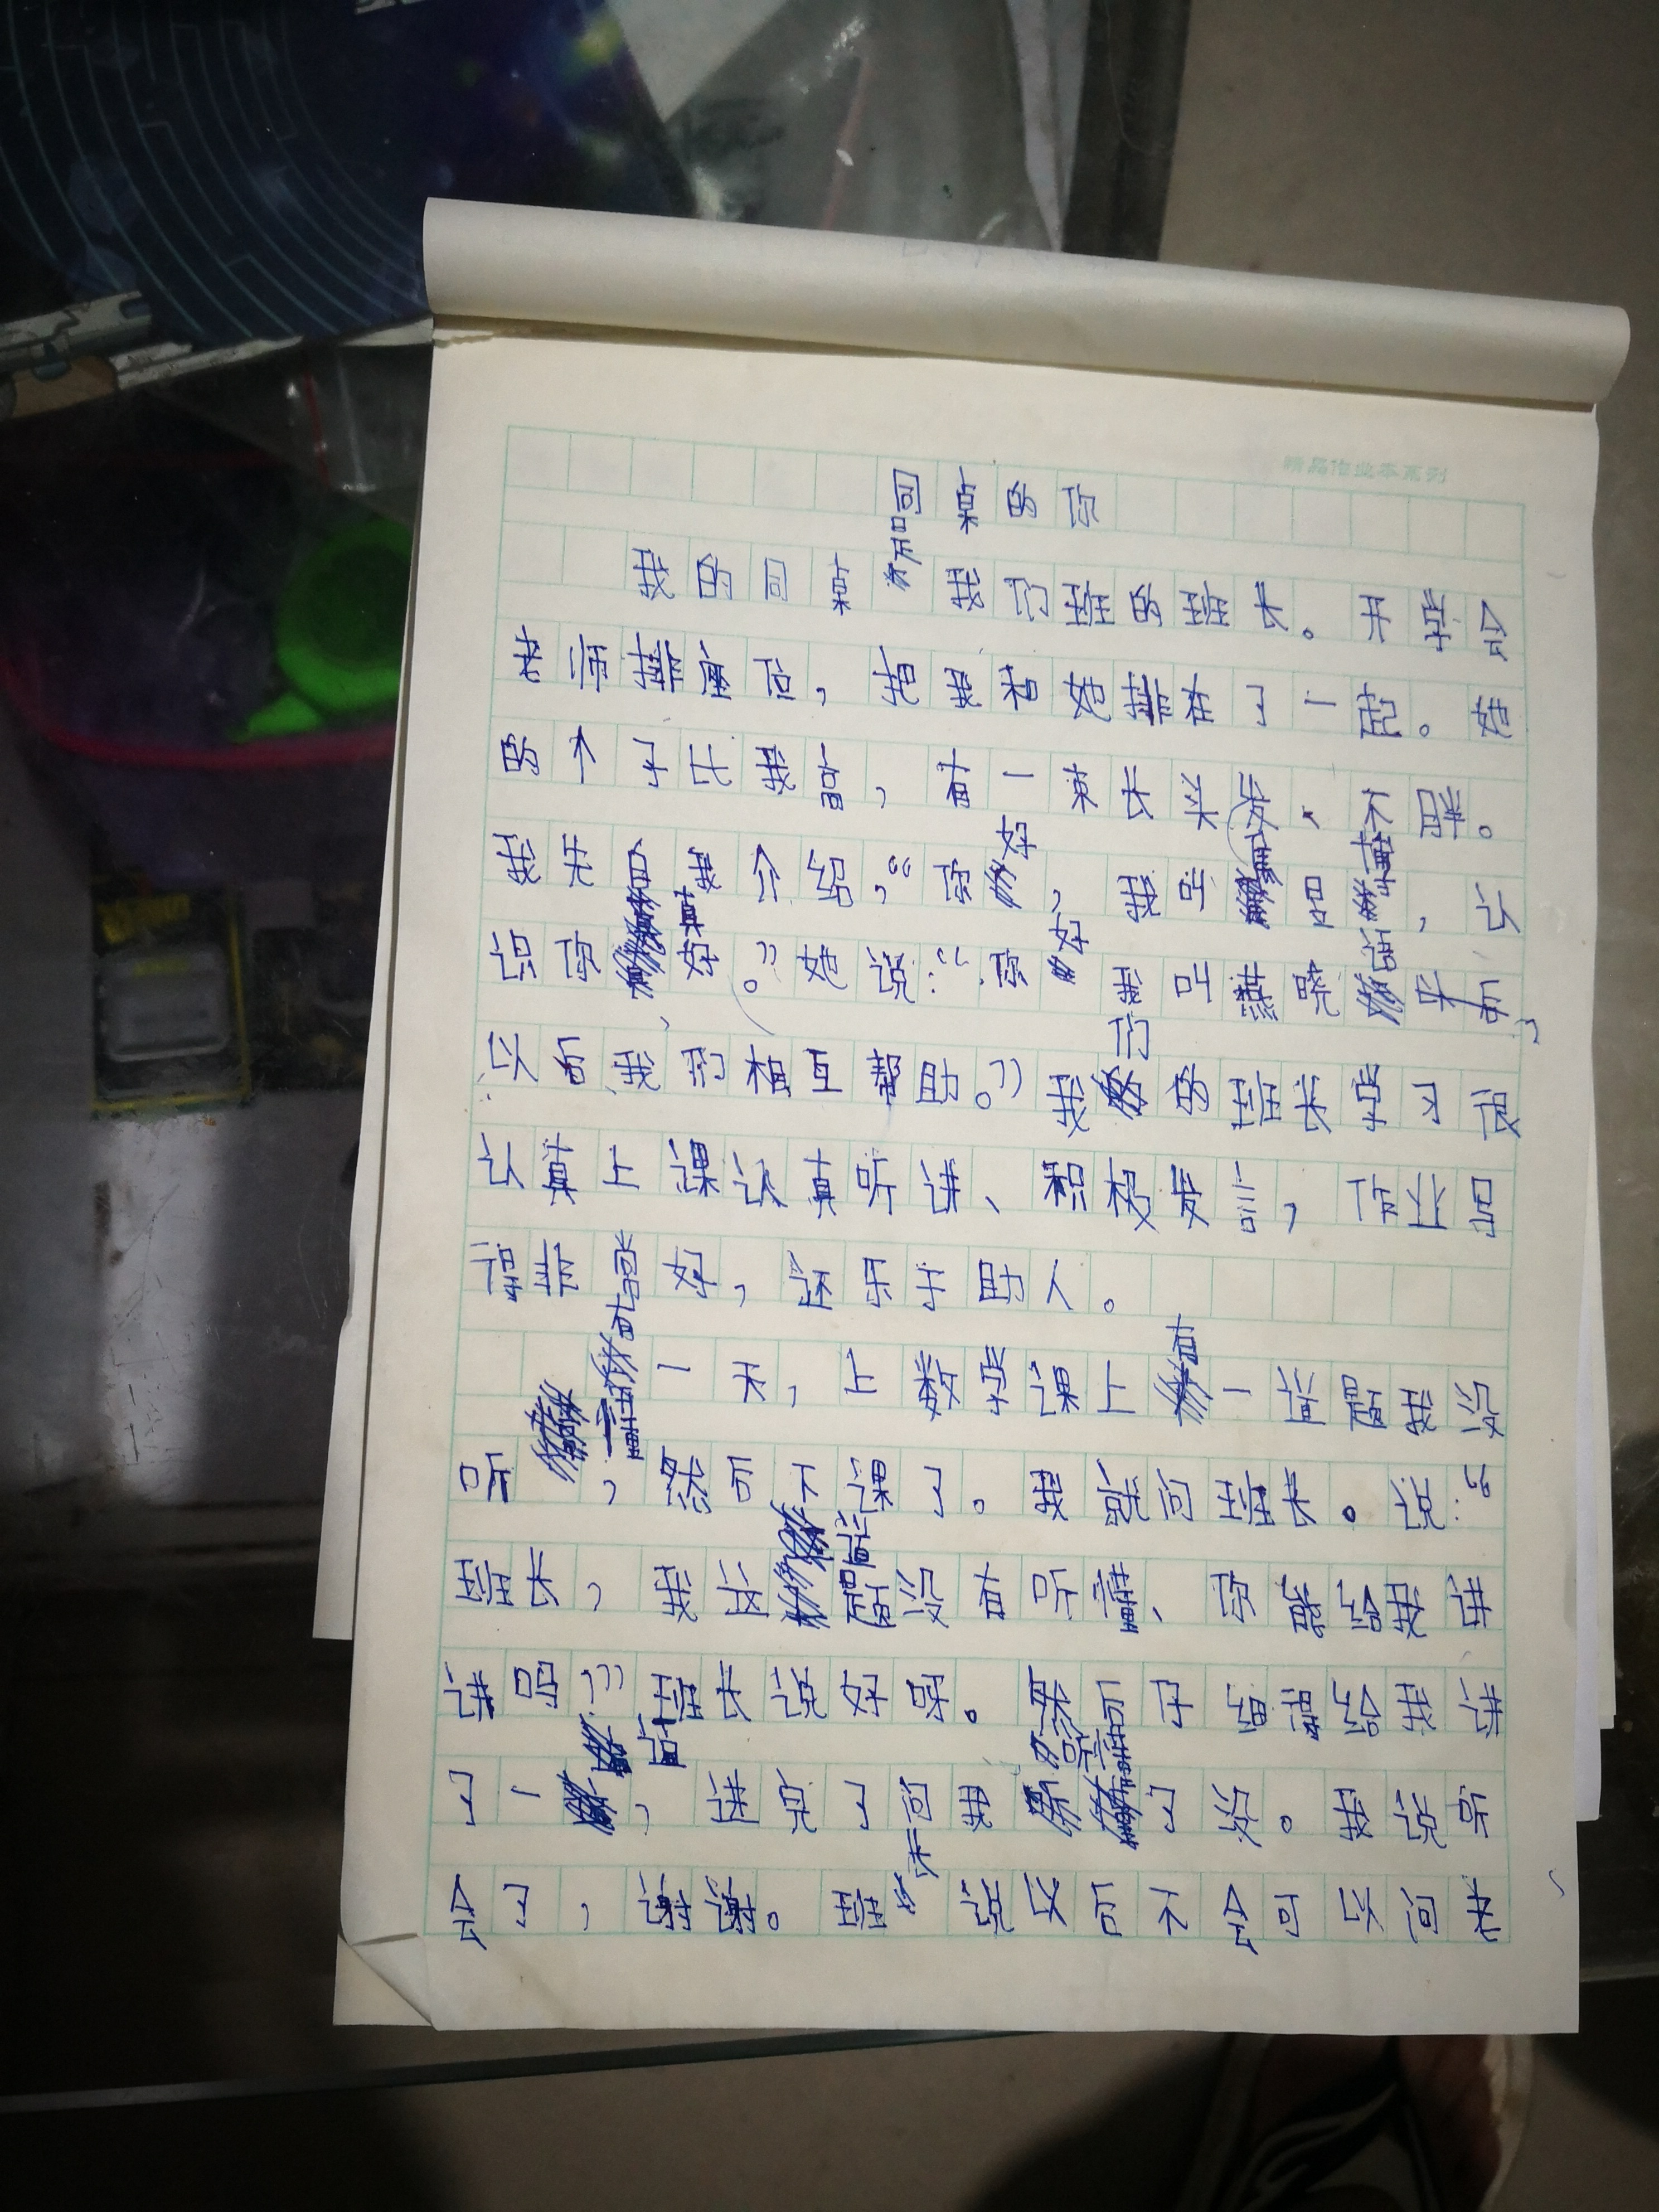 精品作业本系列
同桌的你
我的同桌是我们班的班长。开学会
老师排座位，把我和她排在了一起。她
的个子比我高，有一束长头发，不胖。
我先自我介绍，“你好，我叫，认
识你真好。”她说：“你好我叫燕晓语
以后我们相互帮助。”我们的班长学习很
认真上课认真听讲、积极发言，作业写
得非常好，还乐于助人。
有一天，上数学课上有一道题我没
听懂，然后下课了。我就问班长。说：“
班长，我这道题没有听懂、你能给我讲
讲吗？”班长说好呀。然后仔细得给我讲
了一遍，讲完了问我听懂了没。我说听
会了，谢谢。班长说以后不会可以问老